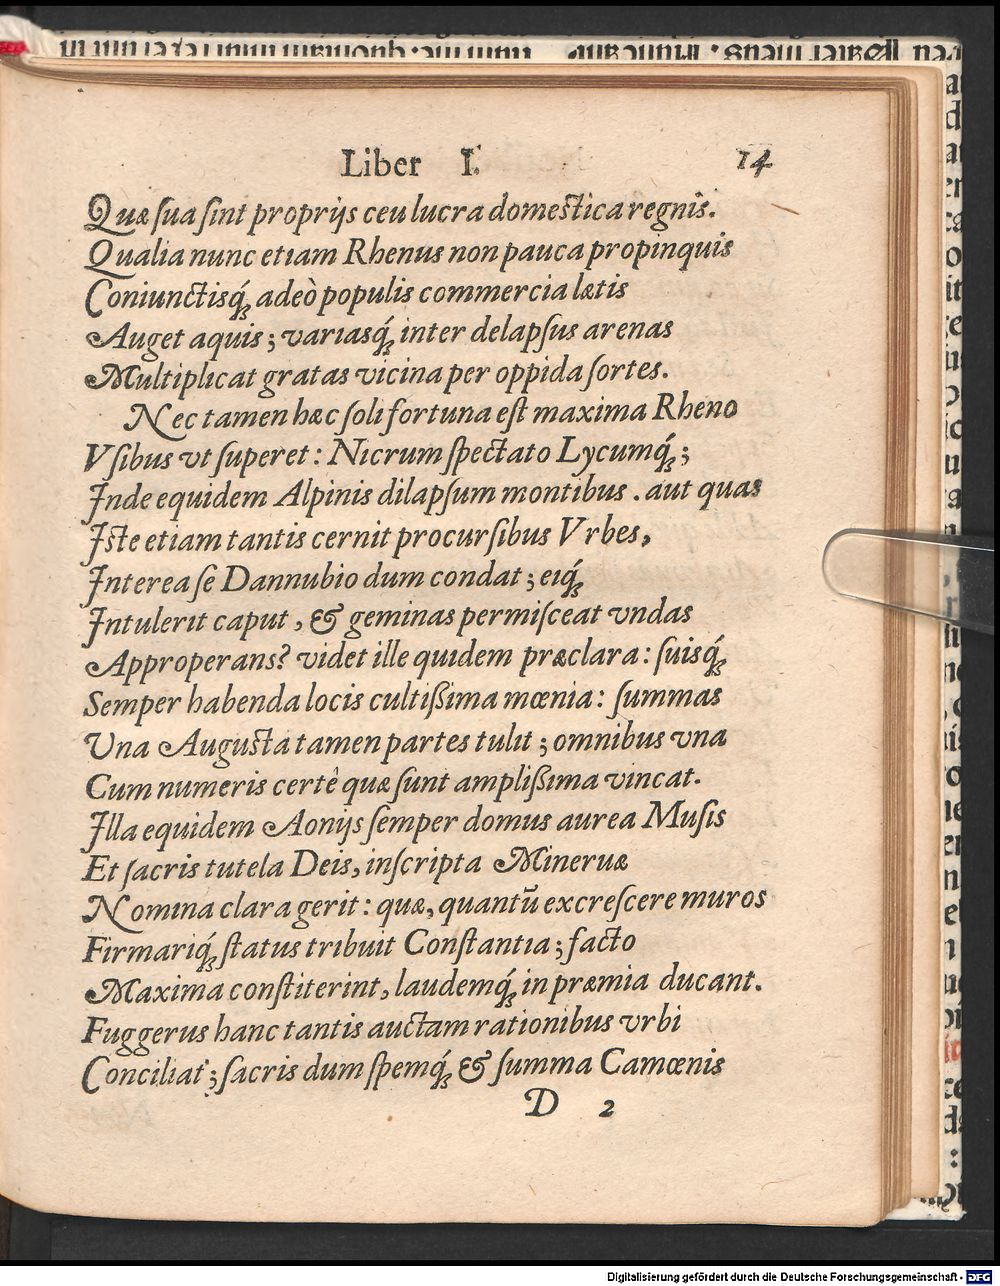 Liber I. 14
Quæ sua sint proprijs ceu lucra domestica regnis.
Qualia nunc etiam Rhenus non pauca propinquis
Coniunctisq́; adeò populis commercia lætis
Auget aquis; variasq́; inter delapsus arenas
Multiplicat gratas vicina per oppida sortes.
Nec tamen hæc soli fortuna est maxima Rheno
Vsibus vt superet: Nicrum spectato Lycumq́;;
Inde equidem Alpinis dilapsum montibus. aut quas
Iste etiam tantis cernit procursibus Vrbes,
Interea se Dannubio dum condat; eiq́;
Intulerit caput, & geminas permisceat vndas
Approperans? videt ille quidem præclara: suisq́;
Semper habenda locis cultißima mœnia: summas
Una Augusta tamen partes tulit; omnibus vna
Cum numeris certê quæ sunt amplißima vincat.
Illa equidem Aonijs semper domus aurea Musis
Et sacris tutela Deis, inscripta Mineruæ
Nomina clara gerit: quæ, quantũ excrescere muros
Firmariq́; status tribuit Constantia; facto
Maxima constiterint, laudemq́; in præmia ducant.
Fuggerus hanc tantis auctam rationibus vrbi
Conciliat; sacris dum spemq́; & summa Camœnis
D 2
Digitalisierung gefördert durch die Deutsche Forschungsgemeinschaft - DFG